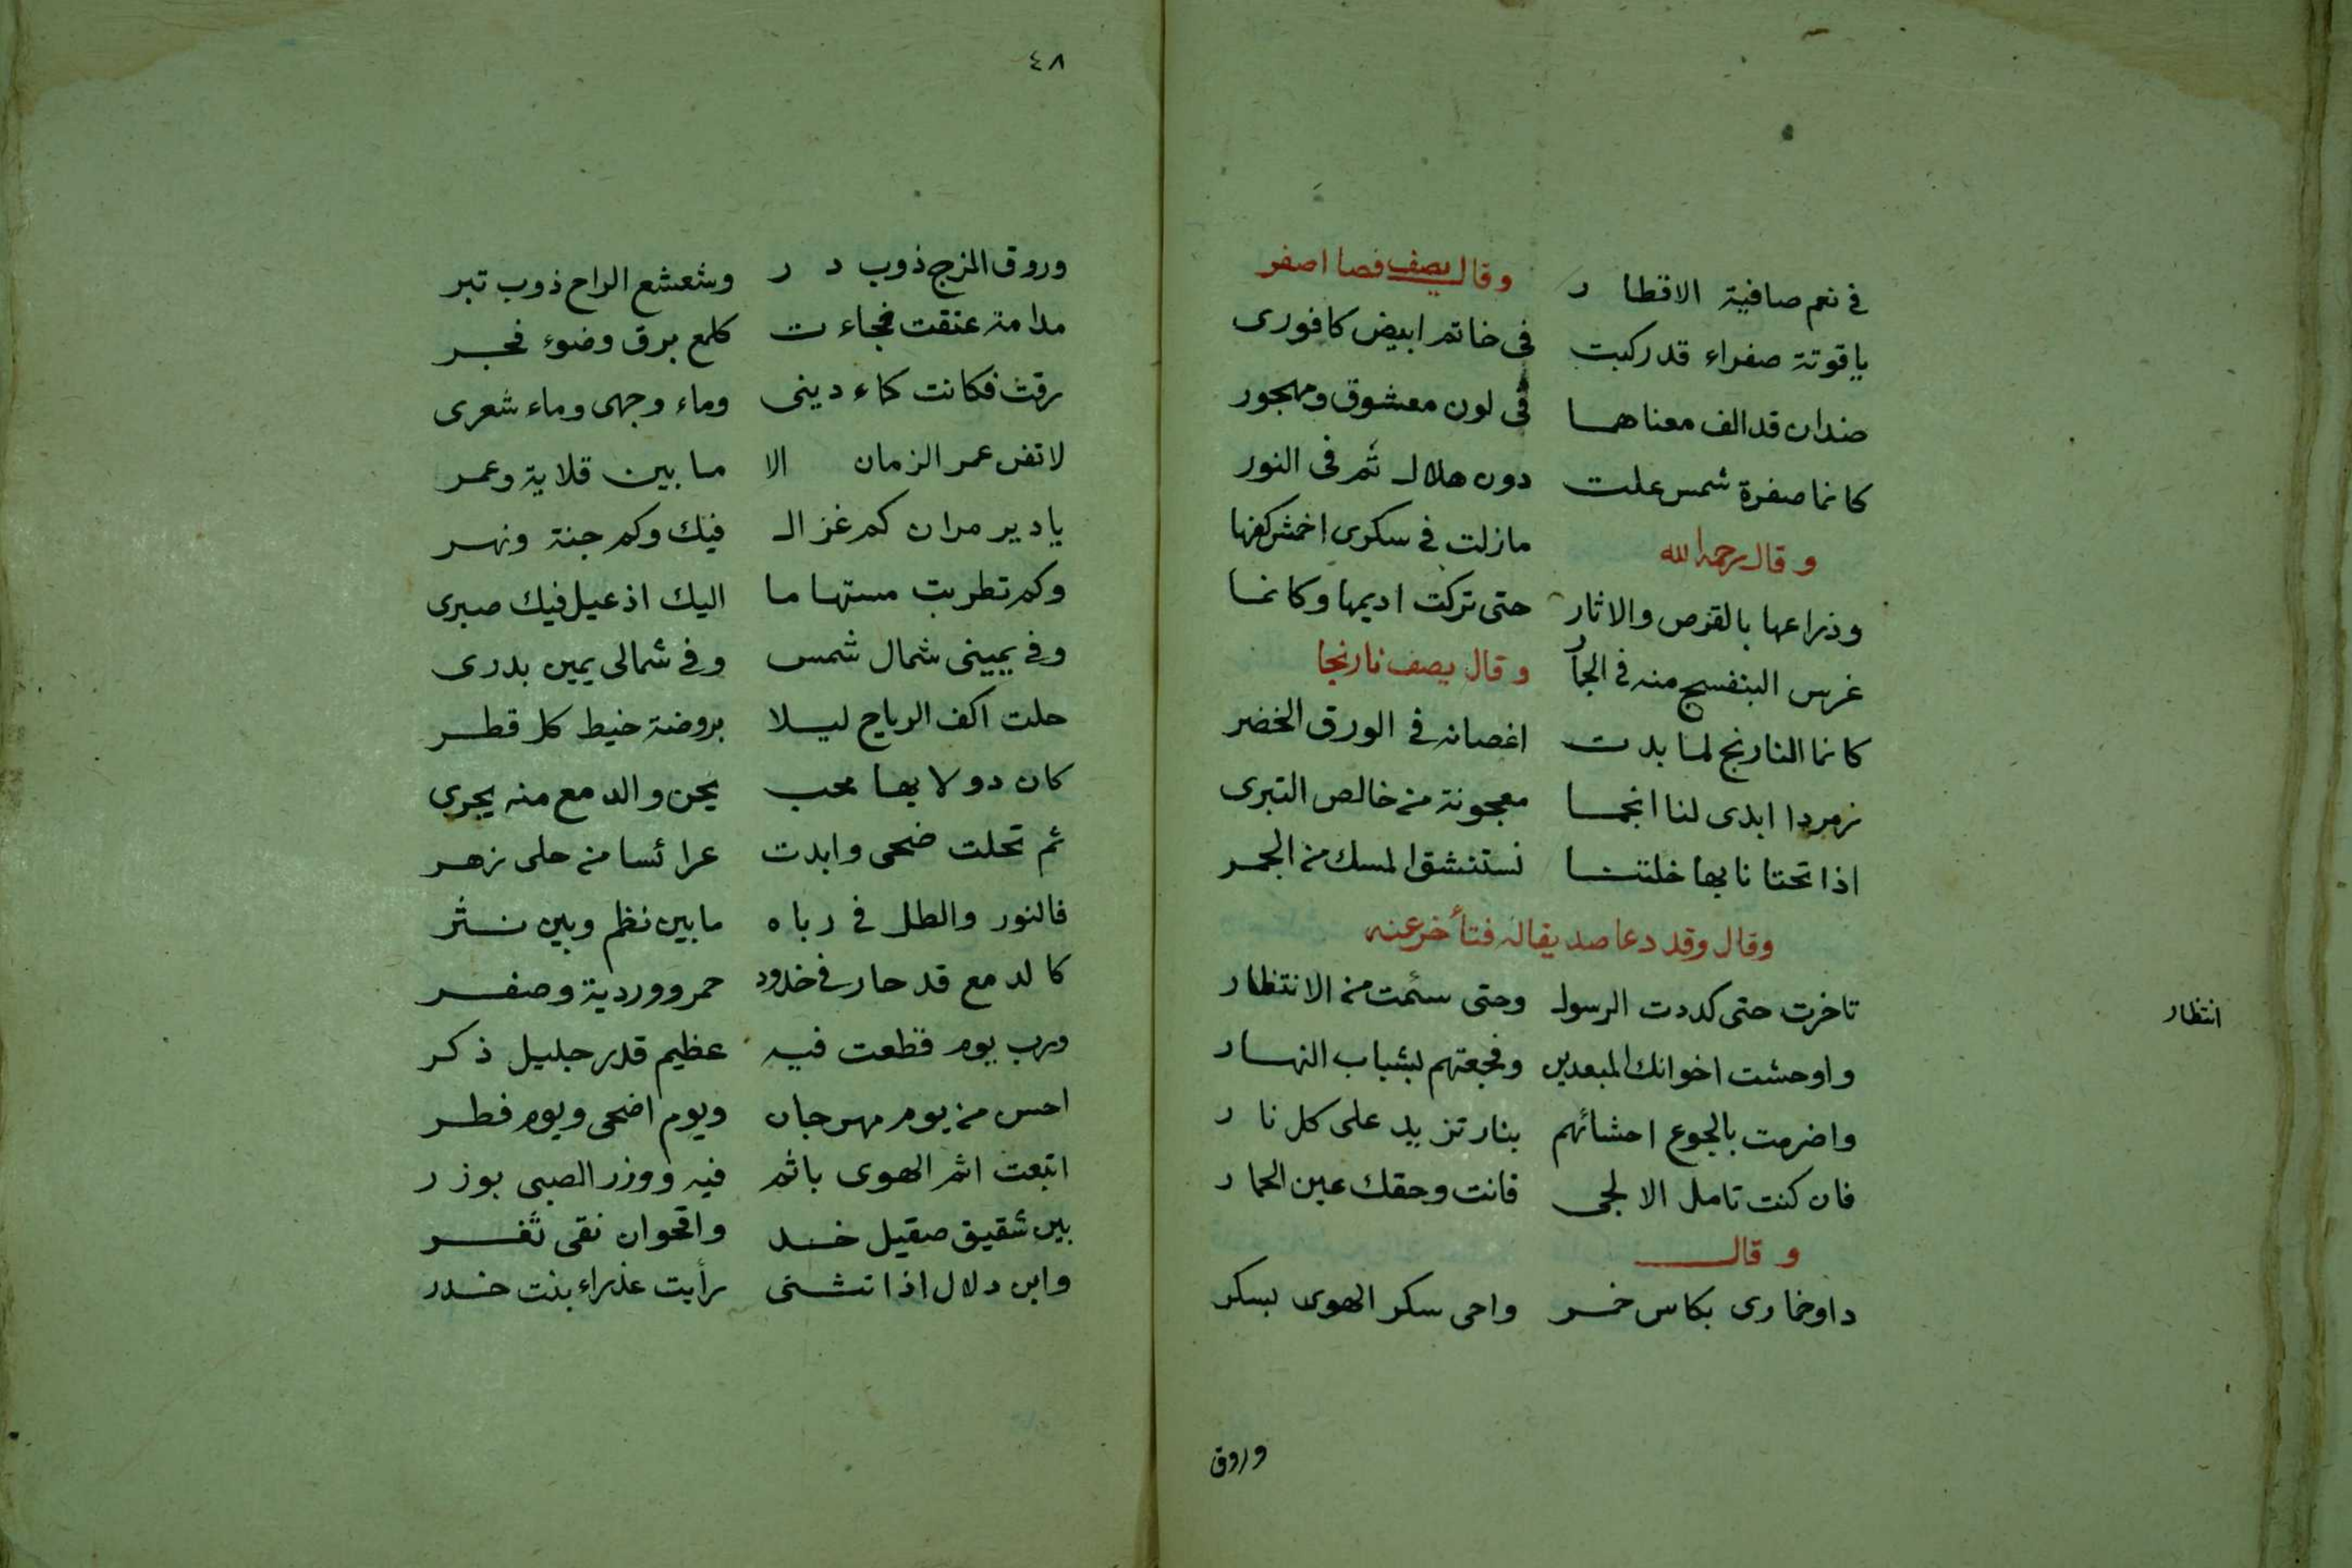 في نعم صافية الاقطار وقال يصف فصا اصفر
ياقوتة صفراء قد ركبت في خاتم ابيض كافورى
ضدان قد الف معناهما في لون معشوق ومهجور
كانما صفرة شمس علت دون هلال ثم في النور
وقال رحمه الله مازلت في سكرى اخمش كفها
وذراعها بالقرص والاثار حتى تركت اديمها وكانما
غرس البنفسج منه في الجمار وقال يصف نارنجا
كانما النارنج لما بدت اغصانه في الورق الخضر
زمردا ابدى لنا انجما معجونة من خالص التبرى
اذا تحتانا بها خلتنا نستنشق المسك من الجمر
وقال وقد دعا صديقا له فتأخر عنه
تاخرت حتى كددت الرسول وحتى سئمت من الانتظار
انتظار
واوحشت اخوانك المبعدين وفجعتهم بشباب النهار
واضرمت بالجوع احشائهم بنار تزيد على كل نار
فان كنت تامل الا لجى فانت وحقك عين الحمار
وقال
داو خمارى بكاس خمر واحى سكر الهوى بسكر
وروق
٤٨
وروق المزج ذوب در وشعشع الراح ذوب تبر
مدامة عتقت فجاءت كلمع برق وضوء فجر
رقت فكانت كماء دينى وماء وجهى وماء شعرى
لا تفن عمر الزمان الا ما بين قلاية وعمر
يا دير مران كم غزال فيك وكم جنة ونهر
وكم تطربت مستهاما اليك اذ عيل فيك صبرى
وفي يمينى شمال شمس وفي شمالى يمين بدرى
حلت اكف الرياح ليلا بروضة خيط كل قطر
كان دولابها محب يحن والدمع منه يجرى
ثم تحلت ضحى وابدت عرائسا من حلى زهر
فالنور والطل في رباه ما بين نظم وبين نثر
كالدمع قد حار في خدود حمر ووردية وصفر
ورب يوم قطعت فيه عظيم قدر جليل ذكر
احسن من يوم مهرجان ويوم اضحى ويوم فطر
اتبعت اثم الهوى باثم فيه ووزر الصبى بوزر
بين شقيق صقيل خد واقحوان نقى ثغر
وابن دلال اذا تثنى رأيت عذراء بنت خدر